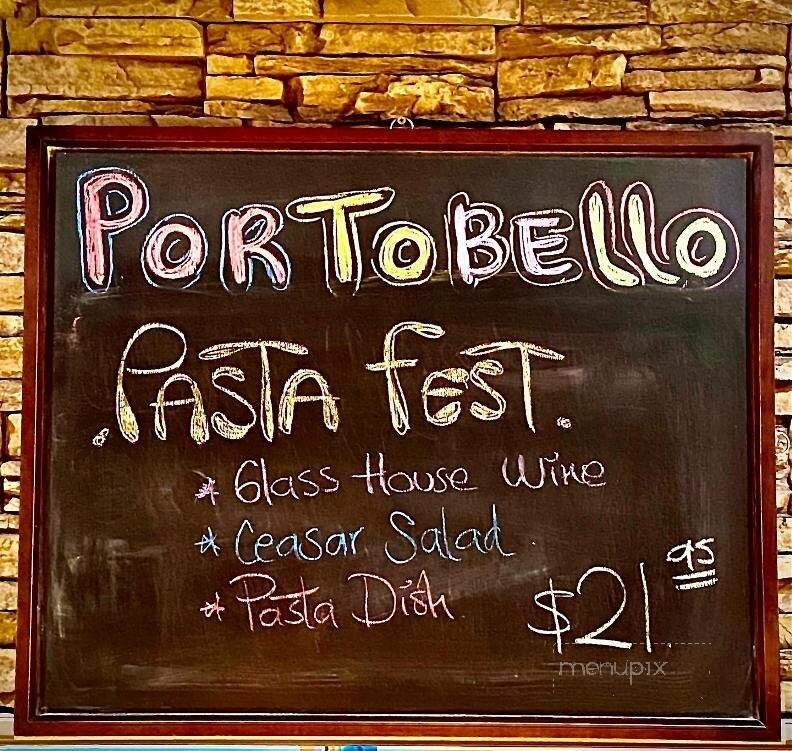 PORTOBELLO
.PASTA FEST.
* Glass House Wine
* Ceasar Salad
* Pasta Dish
$21 95
menupix